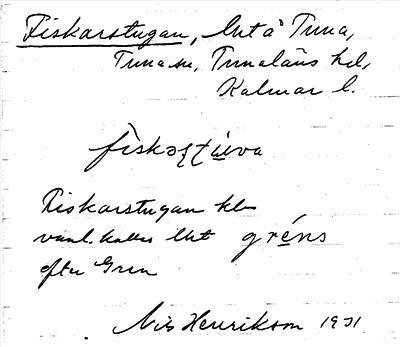 Fiskarstugan, lht å Tuna,
Tuna sn, Tunaläns hd,
Kalmar l.
Fiskarstugan
vanl. kallas lht gréns
efter Gren
Nils Henrikson 1931